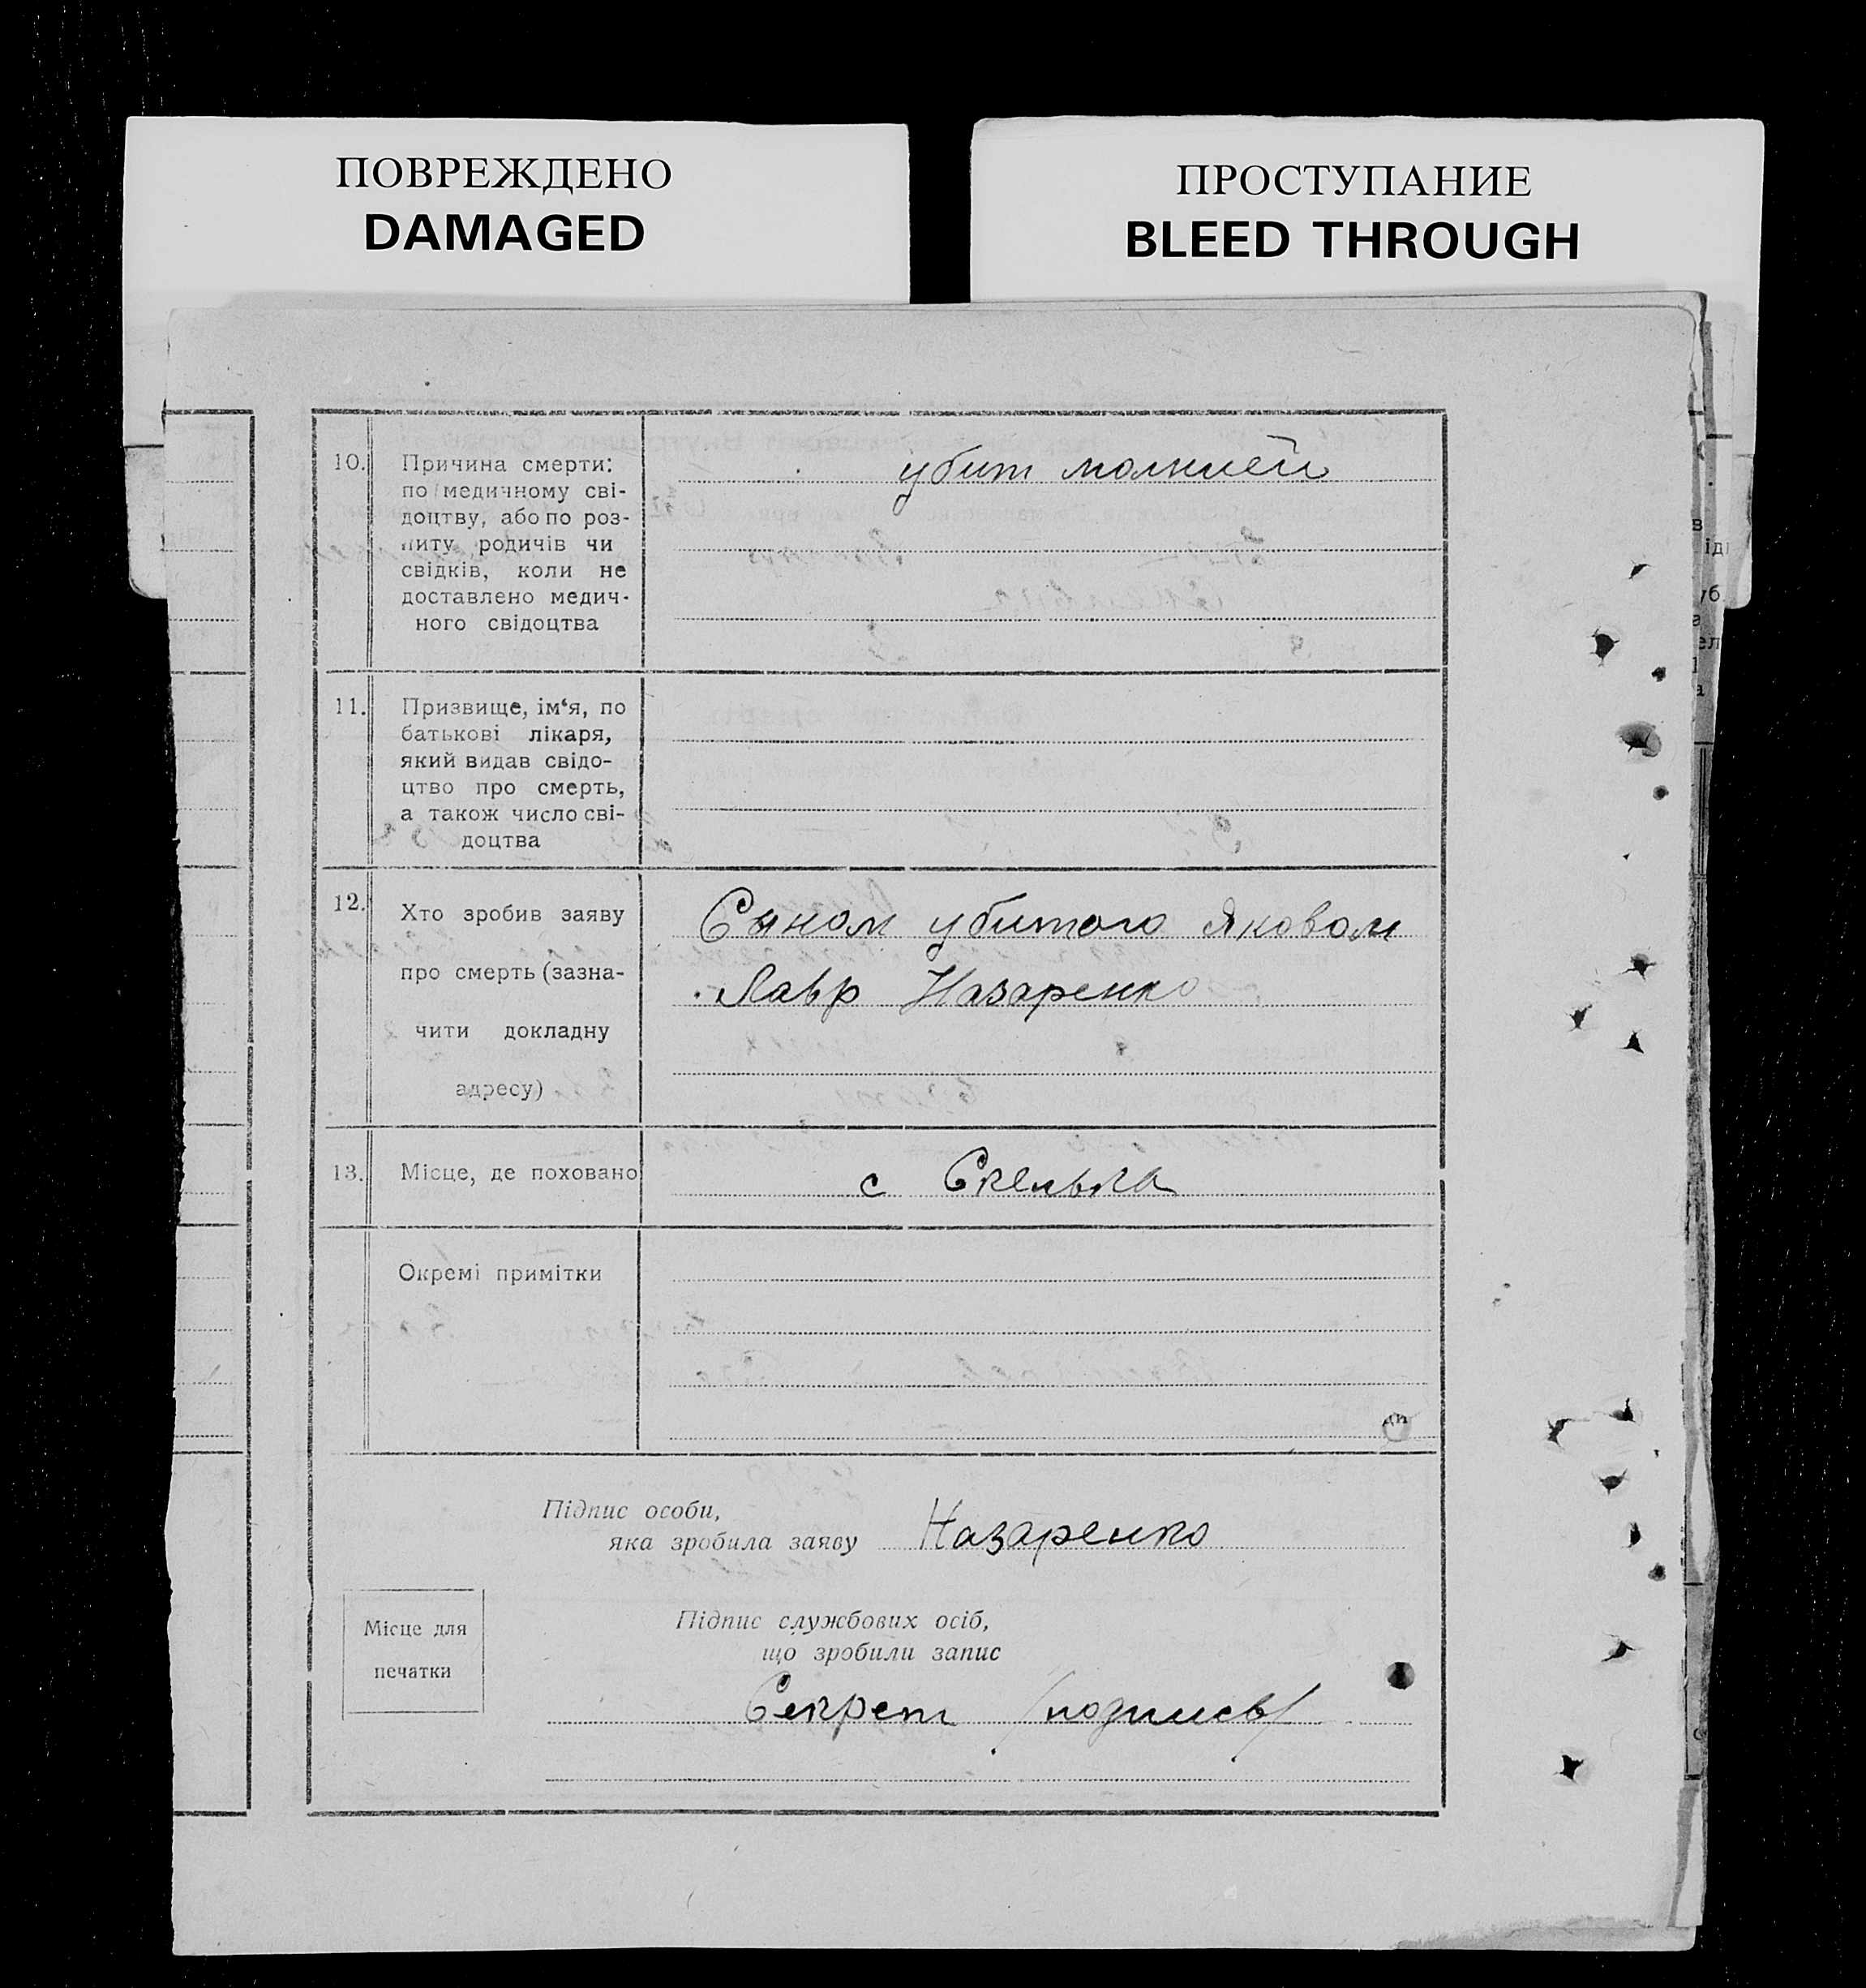 ПОВРЕЖДЕНО
DAMAGED
ПРОСТУПАНИЕ
BLEED THROUGH
10. Причина смерти:
по медичному сві-
доцтву, або по роз-
питу родичів чи
свідків, коли не
доставлено медич-
ного свідоцтва
убит молнией
11. Призвище, ім‘я, по
батькові лікаря,
який видав свідо-
цтво про смерть,
а також число сві-
доцтва
12. Хто зробив заяву
про смерть (зазна-
чити докладну
адресу)
Сыном убитого Яковом
Лавр Назаренко
13. Місце, де поховано
с Скелька
Окремі примітки
Підпис особи,
яка зробила заяву Назаренко
Місце для
печатки
Підпис службових осіб,
що зробили запис
Секрет /подпись/